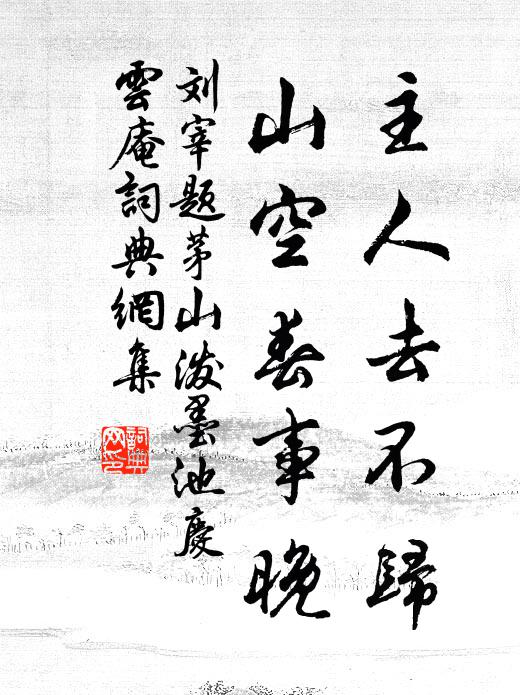 主人去不歸
山空春事晚
刘宰題茅山泼墨池慶
雲庵詞典網集
詞典
网印